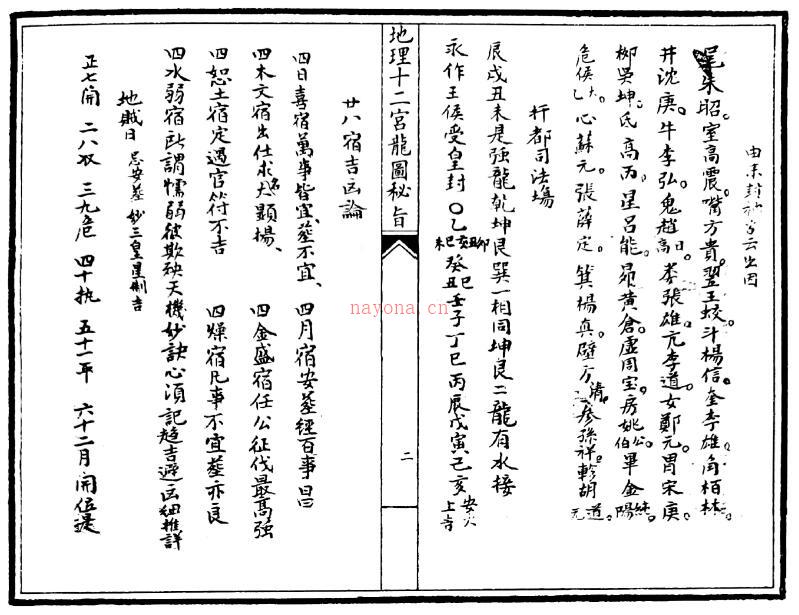 由来封神書云出因
尾朱昭。室高震。嘴方貴。翌王蛟。斗楊信。奎李雄。角栢林。
井沈庚。牛李弘。鬼趙高日。娄張雄。亢李道。女鄭元。胃宋庚。
柳吳坤。氐高丙。星呂能。昴黄倉。虚周宝。房姚公伯。畢金純陽。
危侯太乙。心蘇元。張薛定。箕楊真。壁方清。参孫祥。軫胡道元。
杆都司法塲
辰戌丑未是强龍乾坤艮巽一相同坤艮二龍有水接
永作王侯受皇封〇乙
壬子丁巳丙辰戊寅己亥
地理十二宫龍圖秘旨
二
廿八宿吉凶論
四日喜宿萬事皆宜、塟不宜、四月宿安塟經百事日曰
四木文宿出仕求名大顯揚、四金盛宿任公征伐最高强
四恕土宿定遇官符不吉 四燥宿凡事不宜塟亦良
四水弱宿所謂懦弱彼欺殃天機妙訣心須記趋吉避凶細推詳
地賊日 忌安塟 妙三皇星制吉
正七開 二八収 三九危 四十执 五十一平 六十二月開位是
nayona.cn